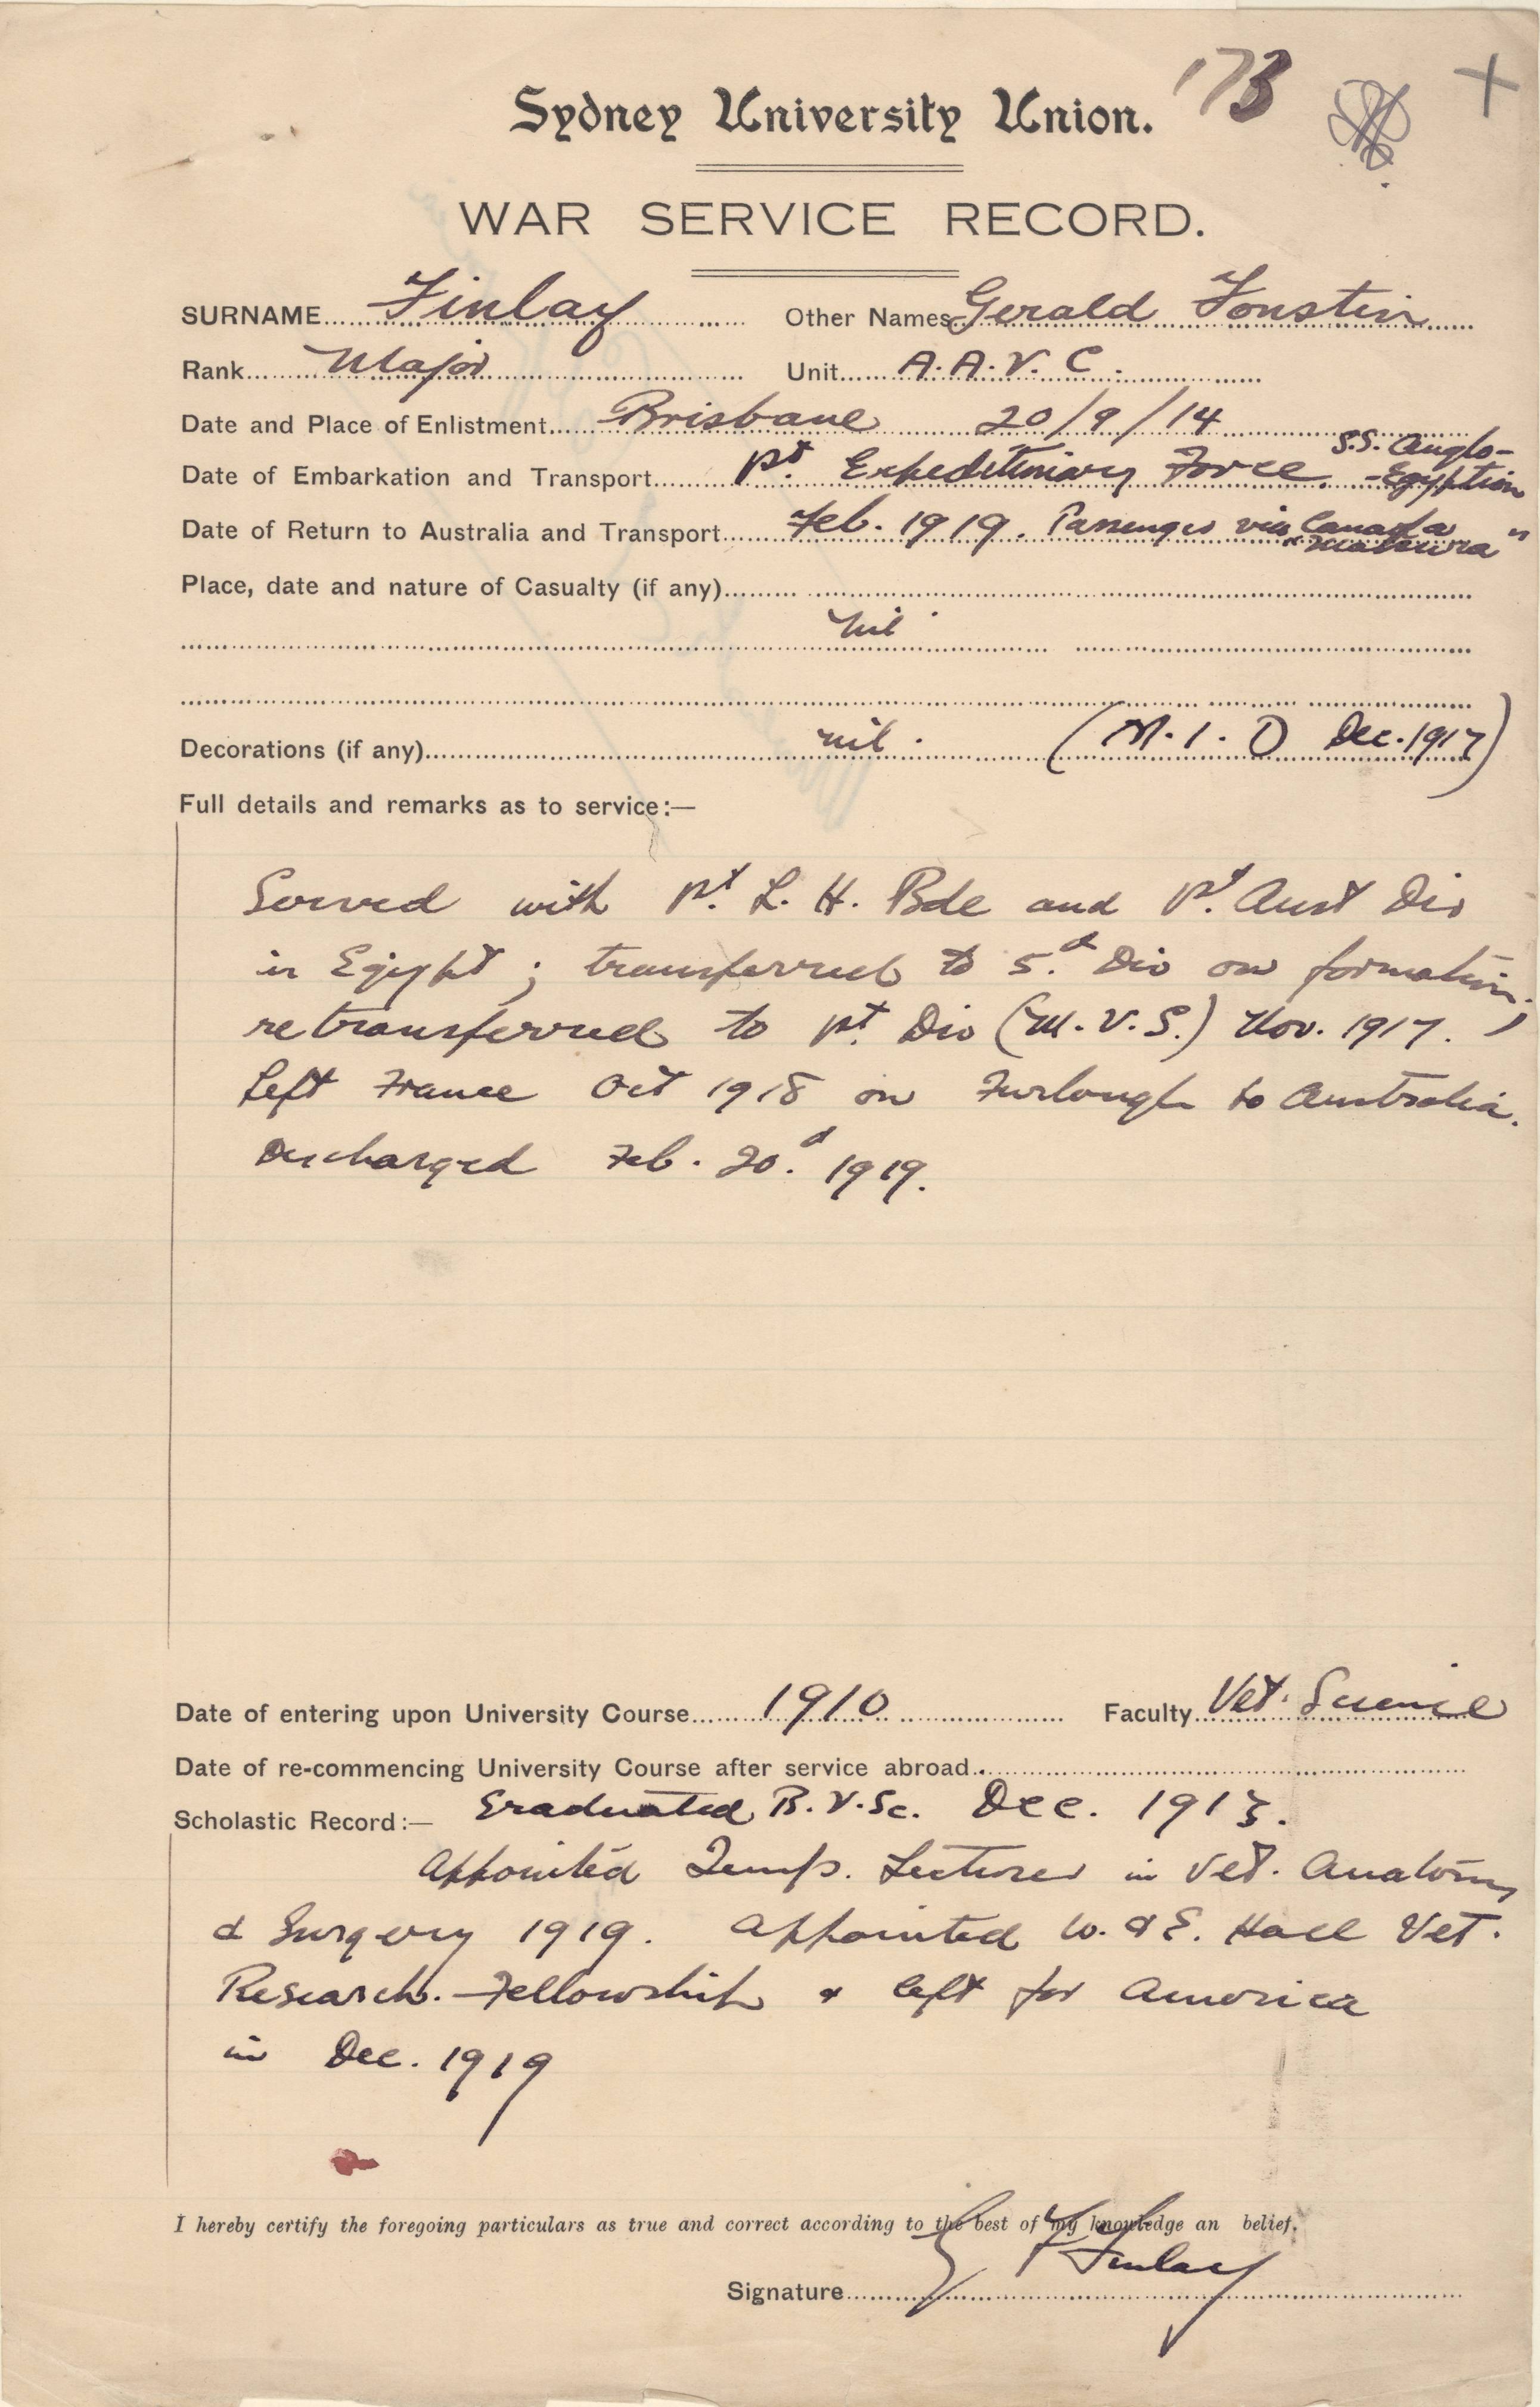 173
Sydney University Union.
WAR SERVICE RECORD.
SURNAME Finlay Other Names Gerald Fonstein
Rank Major Unit A.A.V.C.
Date and Place of Enlistment Brisbane 20/9/14
Date of Embarkation and Transport 1st. Expeditionary Force. S.S. Anglo-
-Egyption
Date of Return to Australia and Transport Feb. 1919. Passenger via Canada
Place, date and nature of Casualty (if any)
nil.
Decorations (if any) nil. (M.I.D Dec. 1917)
Full details and remarks as to service:—
Served with 1st. L.H. Bde and 1st. Aust Div
in Egypt; transferred to 5.d Div on formation;
retransferred to 1st. Div (M.V.S.) Nov. 1917.
Left France Oct 1918 on Furlough to Australia.
Discharged Feb. 20.d 1919.
Date of entering upon University Course 1910 Faculty Vet. Science
Date of re-commencing University Course after service abroad
Scholastic Record:— Graduated B.V.Sc. Dec. 1913.
Appointed Temp. Lecturer in Vet. Anatomy
& Surgery 1919. Appointed W. & E. Hall Vet.
Research. Fellowship & left for America
in Dec. 1919
I hereby certify the foregoing particulars as true and correct according to the best of my knowledge an belief.
Signature G F Finlay